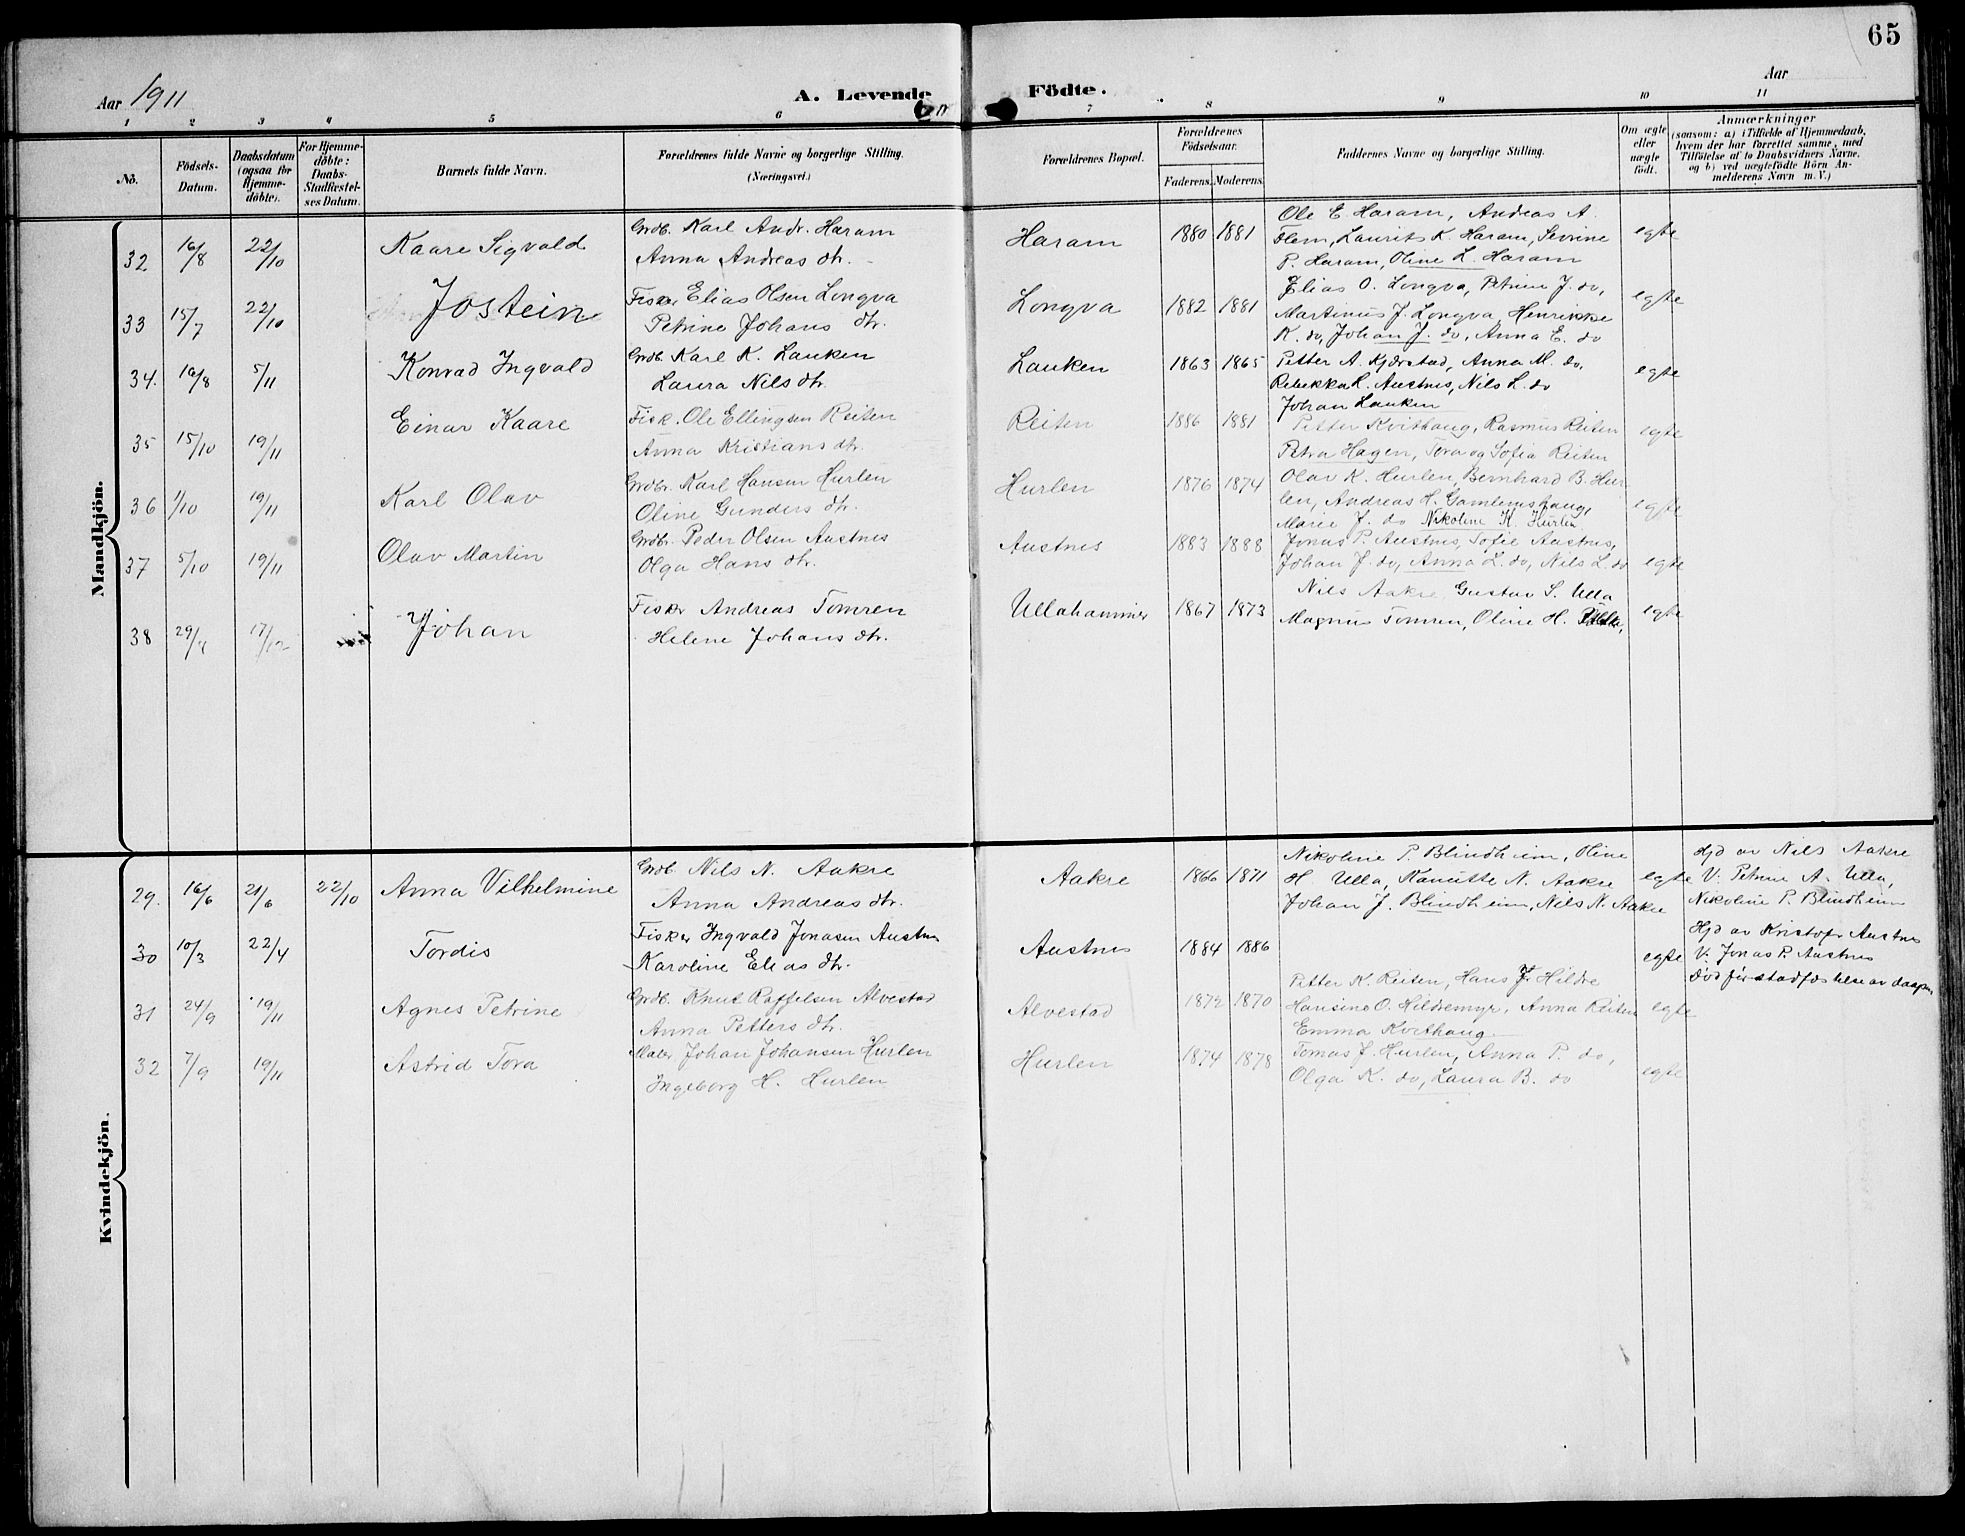 65
Aar 1911
A. Levende
Födte.
Aar
1 2 3 4 5 6 7 8 9 10 11
No.
Födsels-
Datum.
Daabsdatum
(ogsaa for
Hjemme-
döbte).
For Hjemme-
döbte:
Daabs-
Stadfæstel-
ses Datum.
Barnets fulde Navn.
Forældrenes fulde Navne og borgerlige Stilling.
(Næringsvei.)
Forældrenes Bopæl.
Forældrenes
Födselsaar.
Faderens. Moderens.
Faddernes Navne og borgerlige Stilling.
Om ægte
eller
uægte
födt.
Anmærkninger
(saasom: a) i Tilfælde af Hjemmedaab,
hvem der har forrettet samme, med
Tilföielse af to Daabsvidners Navne.
og b) ved uægtefödte Börn An-
melderens Navn m. V.)
Mandkjön.
32 16/8 22/10 Kaare Sigvald
Grdb. Karl Andr. Haram
Anna Andreas dtr.
Haram 1880 1881
Ole E. Haram, Andreas A.
Flem, Laurits K. Haram, Sevrine
P. Haram, Oline L. Haram
egte
33 15/7 22/10 Jostein
Fisker Elias Olsen Longva
Petrine Johans dtr.
Longva 1882 1881
Elias O. Longva, Petrine J. do,
Martinus J. Longva, Henrikke
K. do, Johan J. do, Anna E. do
egte
34. 16/8 5/11 Konrad Ingvald
Grdb Karl K. Lauken
Laura Nils dtr.
Lauken 1863 1865
Petter A. Kjærstad, Anna M. do,
Rebekka L. Austnes, Nils L. do
Johan Lauken
egte
35 15/10 19/11 Einar Kaare
Fisk. Ole Ellingsen Reiten
Anna Kristians dtr.
Reiten 1886 1881
Petter Kvithaug, Rasmus Reiten
Petra Hagen, Tora og Sofia Reiten
egte
36 1/10 19/11 Karl Olav
Grdbr. Karl Hansen Hurlen
Oline Gunders dtr.
Hurlen 1876 1874
Olav K. Hurlen, Bernhard B. Hur
len, Andreas H. Gamlemshaug,
Marie J. do Nikoline K. Hurlen
egte
37 5/10 19/11 Olav Martin
Grdbr. Peder Olsen Austnes
Olga Hans dtr.
Austnes 1883 1888
Jonas P. Austnes, Sofie Austnes,
Johan J. do, Anna L. do, Nils L. do
egte
38 29/ 17/12 Johan
Fisker Andreas Tomren
Helene Johans dtr.
Ullahammer 1867 1873
Nils Aakre Gustav S. Ulla
Magnus Tomren, Oline H.
egte
Kvindekjön.
29. 16/6 21/6 22/10 Anna Vilhelmine
Grdb. Nils N. Aakre
Anna Andreas dtr.
Aakre 1866 1871
Nikoline P. Blindheim, Oline
H. Ulla, Nanutte N. Aakre
Johan J. Blindheim, Nils N. Aakre
egte
Hjd av Nils Aakre
V: Petrine A. Ulla,
Nikoline P. Blindheim
30 10/3 22/4 Tordis
Fisker Ingvald Jonasen Austnes
Karoline Elias dtr.
Austnes 1884 1886
egte
Hjd av Kristofer Austnes
V: Jonas P. Austnes
Död för stadfæstelse av daapen
31 24/9 19/11 Agnes Petrine
Grdb. Knut Raffelsen Alvestad
Anna Petters dtr.
Alvestad 1872 1870
Petter K. Reiten, Hans J. Hildre
Hansine O. Hildremyr, Anna Reiten
Emma Kvithaug
egte
32 7/9 19/11 Astrid Tora
Maler Johan Johansen Hurlen
Ingeborg H. Hurlen
Hurlen 1874 1878
Tomas J. Hurlen, Anna P. do,
Olga K. do, Laura B. do
egte